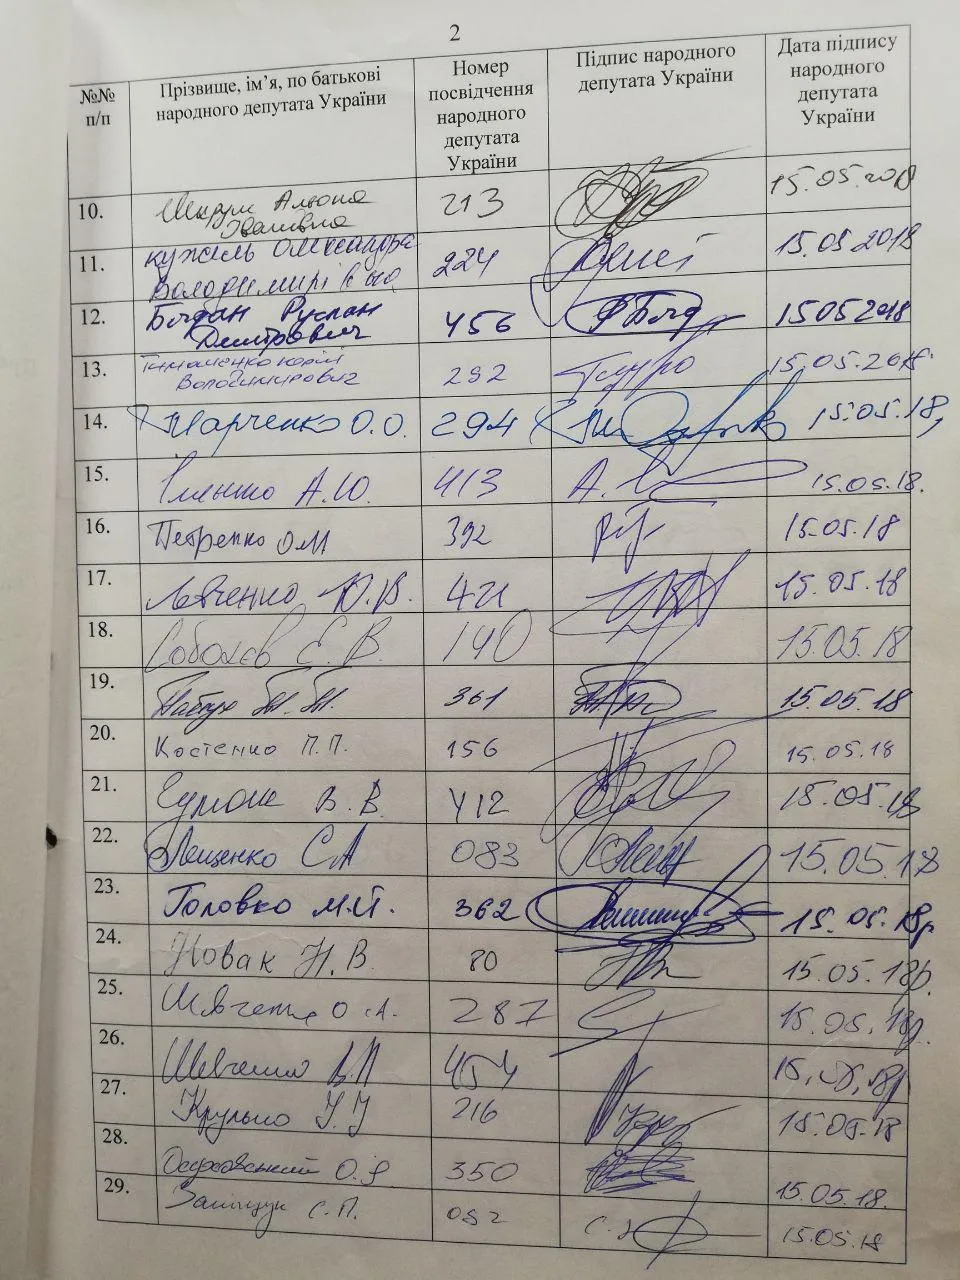 2
№№ п/п
Прізвище, ім’я, по батькові народного депутата України
Номер посвідчення народного депутата України
Підпис народного депутата України
Дата підпису народного депутата України
10. Шкрум Альона Іванівна 213 15.05.2018
11. Кужель Олександра Володимирівна 224 15.05 2018
12. Богдан Руслан Дмитрович 456 РБогд 15.05 2018
13. Тимошенко Юрій Володимирович 292 15.05.2018.
14. Марченко О.О. 294 15.05.18,
15. Іллєнко А.Ю. 413 15.05.18.
16. Петренко О М 392 15.05.18
17. Левченко Ю.В. 421 15.05.18
18. Соболєв Є. В. 140 15.05.18
19. 361 15.05.18
20. Костенко П.П. 156 15.05.18
21. В. В. 412 15.05.18
22. Лещенко С А 083 15.05.18
23. Головко М.Й. 362 15.05.18р
24. Новак Н. В. 80 15.05.18р.
25. Шевченко О. А. 287 15.05.18р.
26. Шевченко В.Л 454 15.05.18р
27. Крулько І. І 216 15.05.18
28. Осуховський О.І. 350 15.05.18.
29. Заліщук С.П. 052 15.05.18